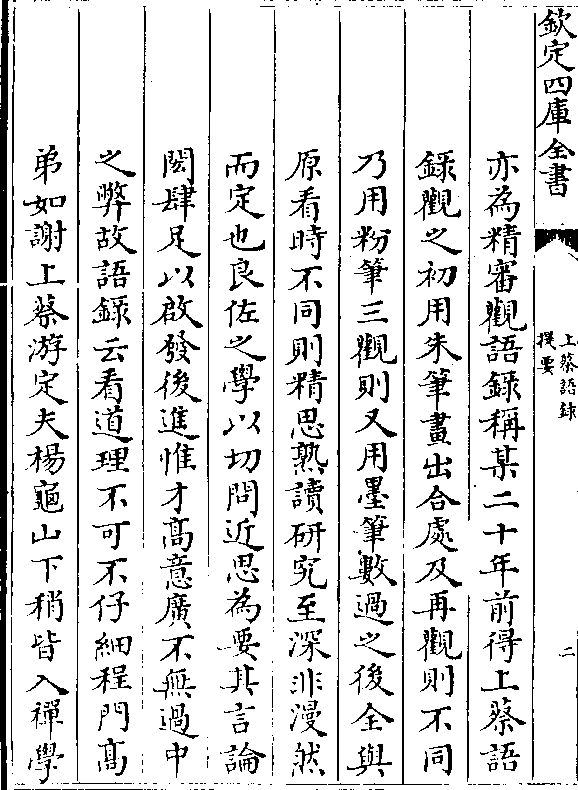 欽定四庫全書
上蔡語錄
提要
二
亦為精審觀語錄稱某二十年前得上蔡語
錄觀之初用朱筆畫出合處及再觀則不同
乃用粉筆三觀則又用墨筆數過之後全與
原看時不同則精思熟讀研究至深非漫然
而定也良佐之學以切問近思為要其言論
閎肆足以啟發後進惟才高意廣不無過中
之弊故語錄云看道理不可不仔細程門高
弟如謝上蔡游定夫楊龜山下稍皆入禪學